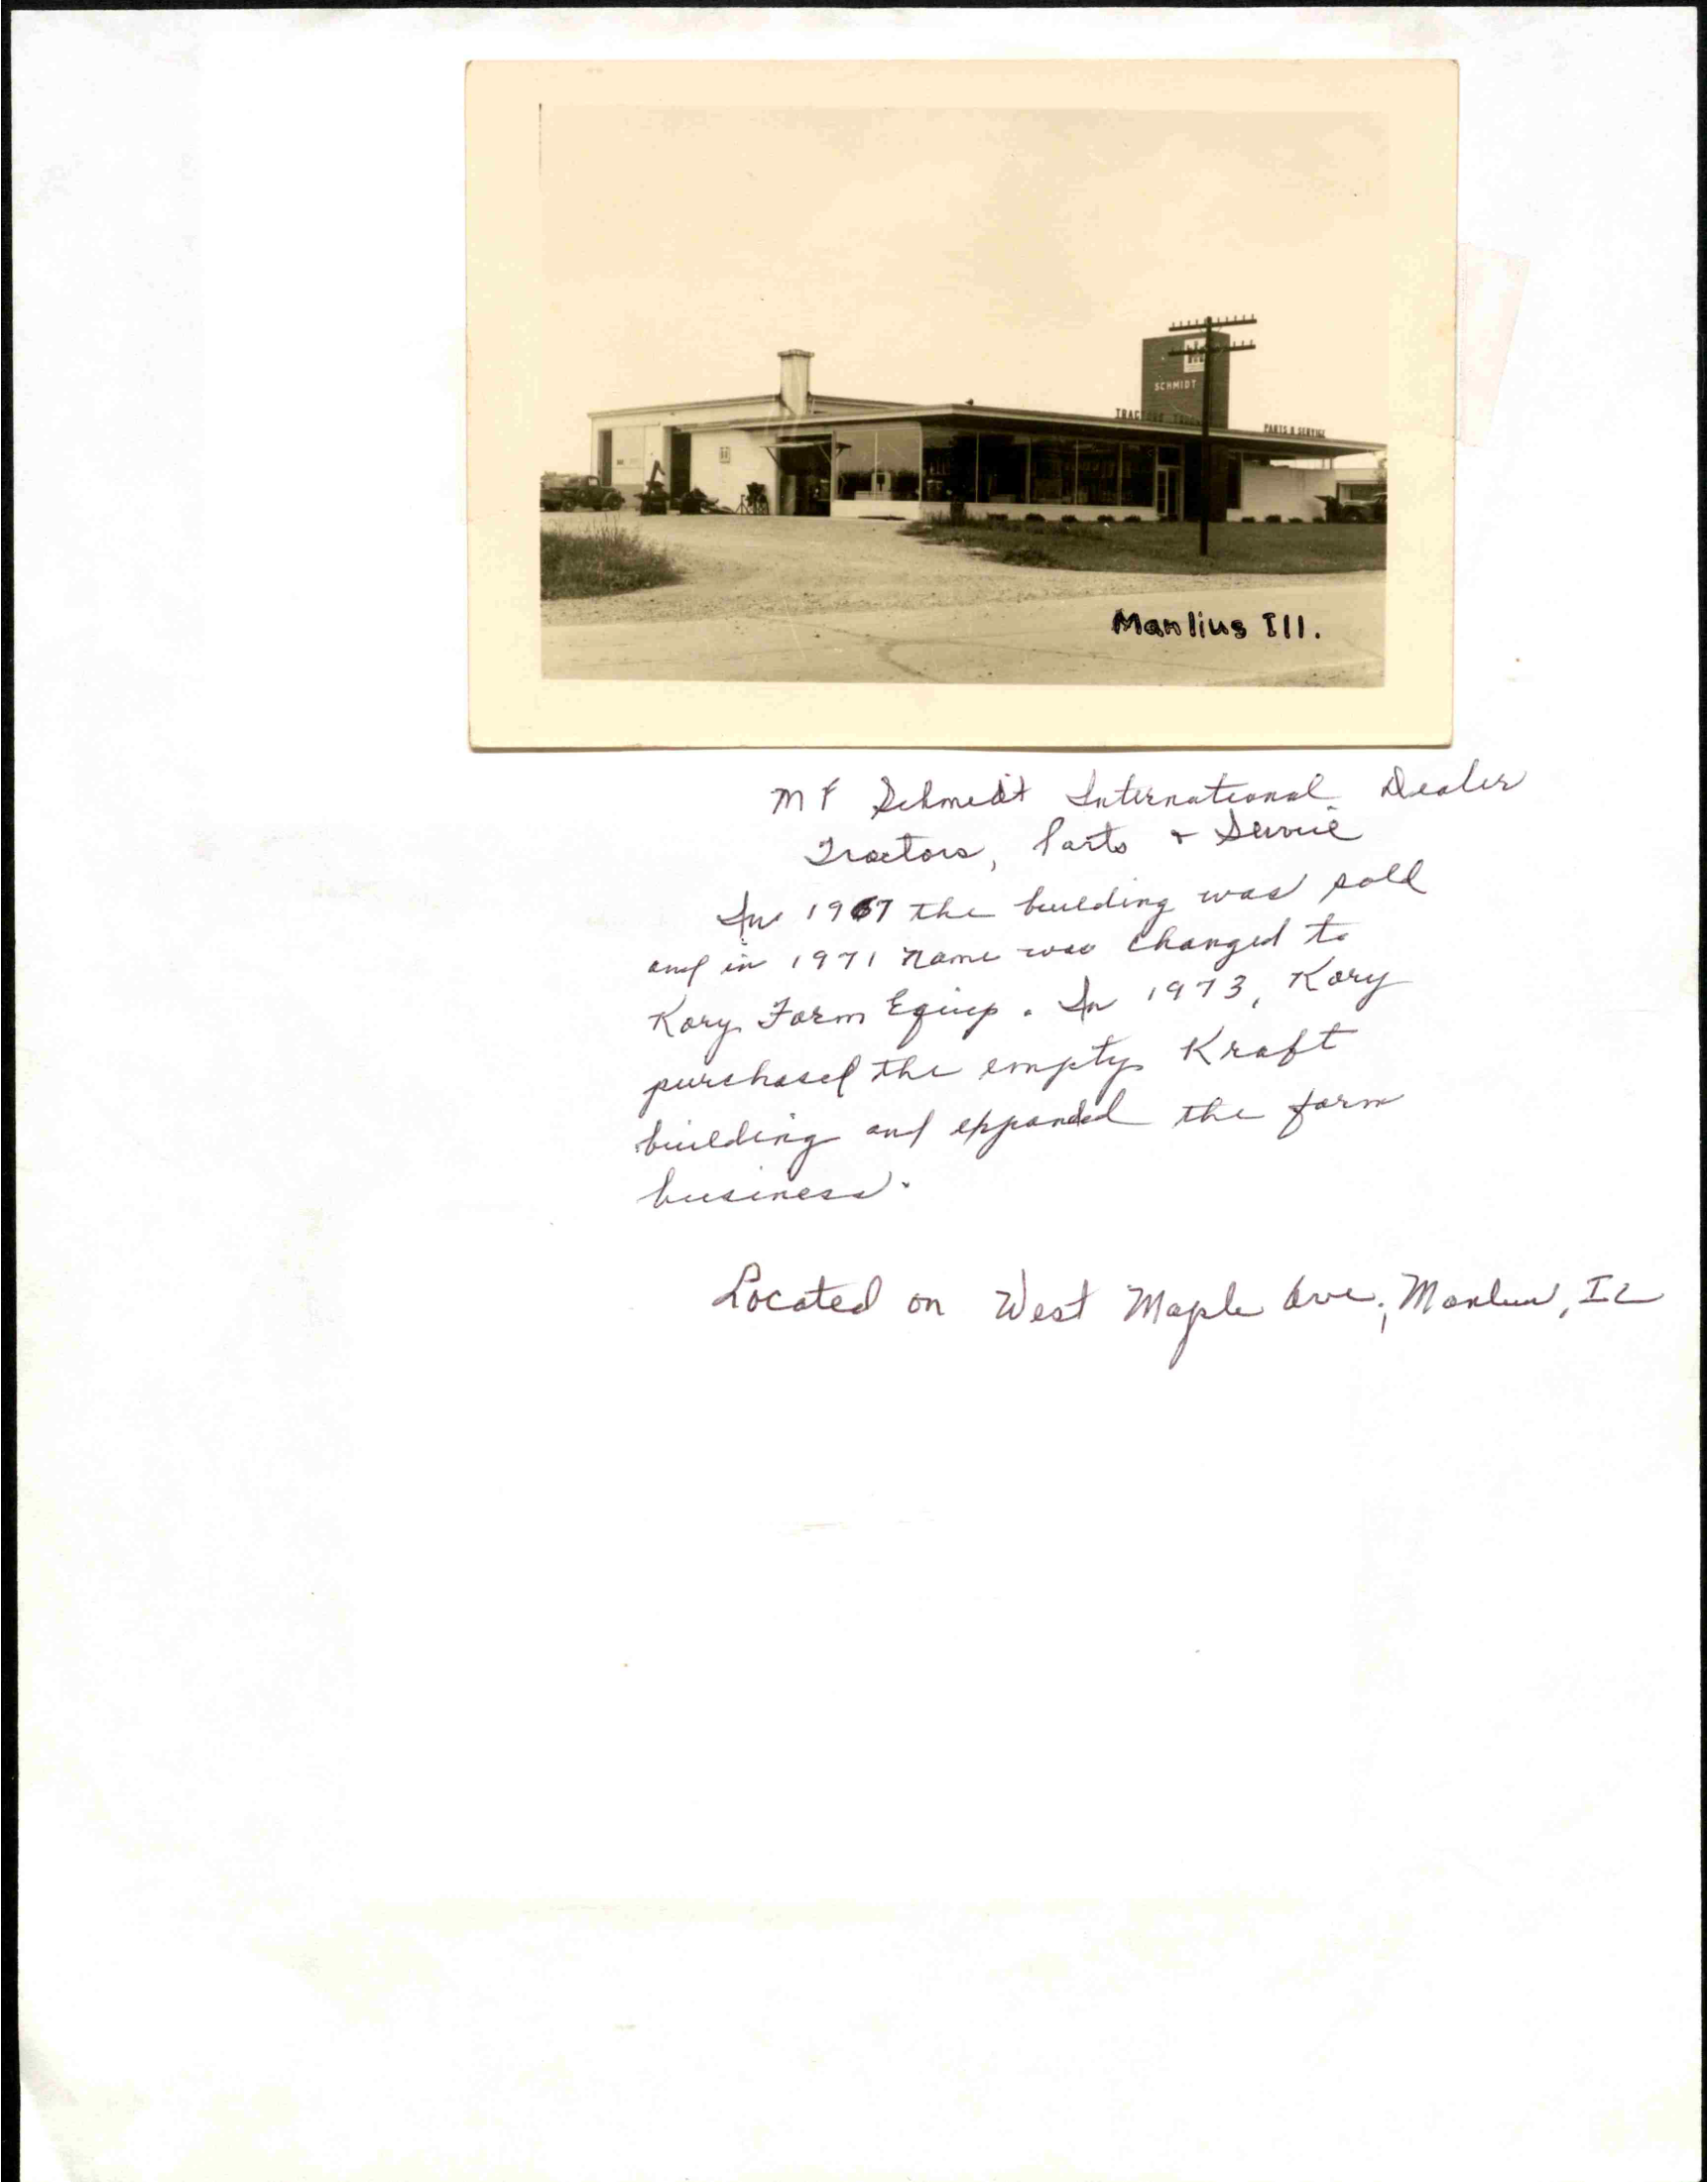 IH
SCHMIDT
TRACTORS TRUCKS
PARTS & SERVICE
IH
Manlius Ill.
M F Schmidt International Dealer
Tractors, Parts + Service
In 1967 the building was sold
and in 1971 name was changed to
Kory Farm Equip. In 1973, Kory
purchased the empty Kraft
building and expanded the farm
business.
Located on West Maple Ave., Manlius, IL